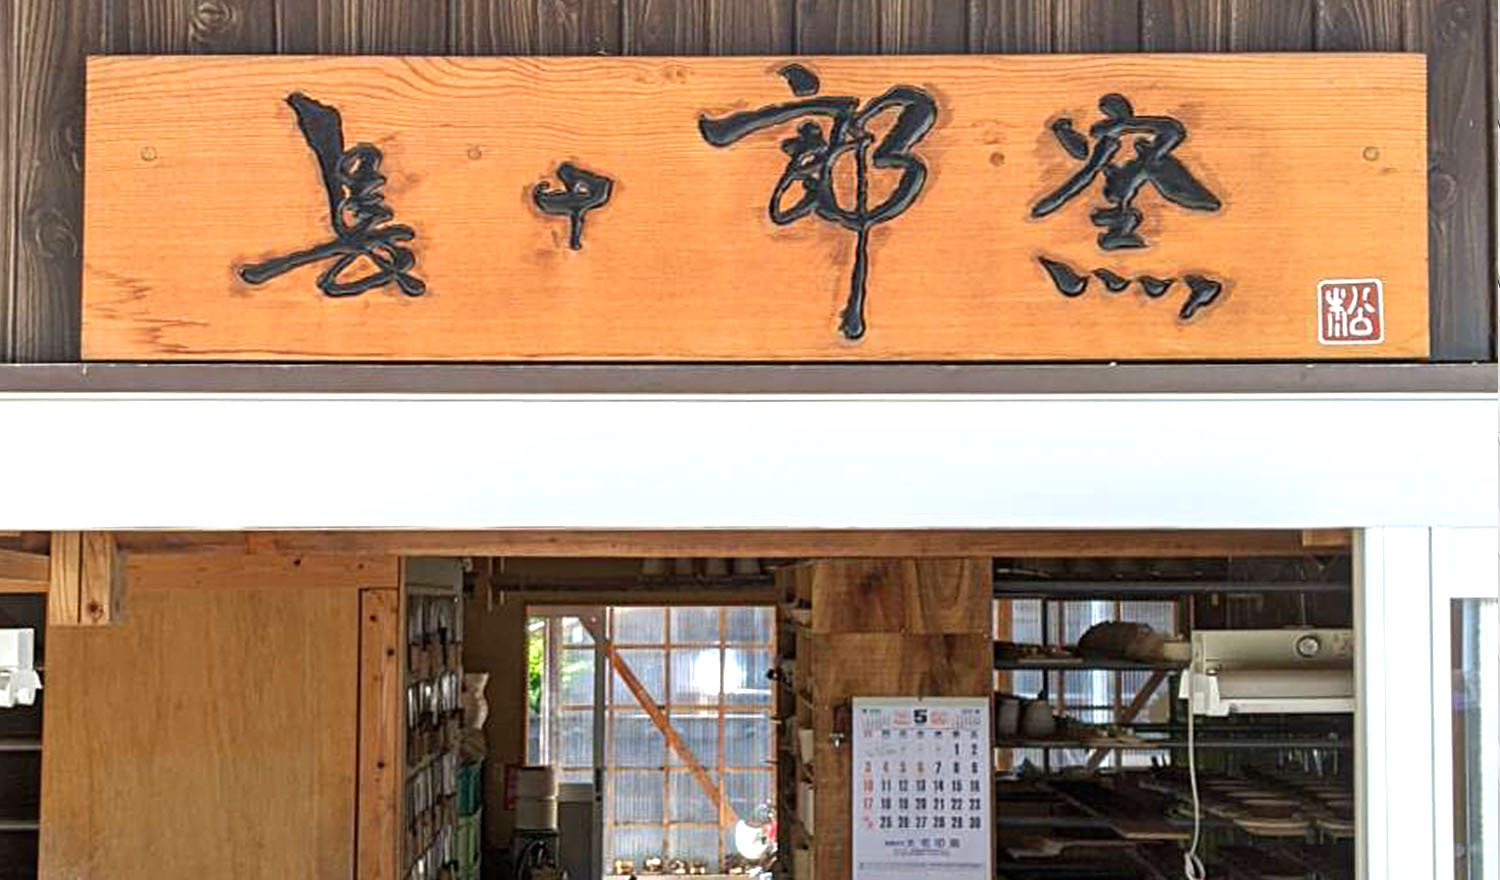 長十郎窯
松
5
1 2
3 4 5 6 7 8 9
10 11 12 13 14 15 16
17 18 19 20 21 22 23
25 26 27 28 29 30